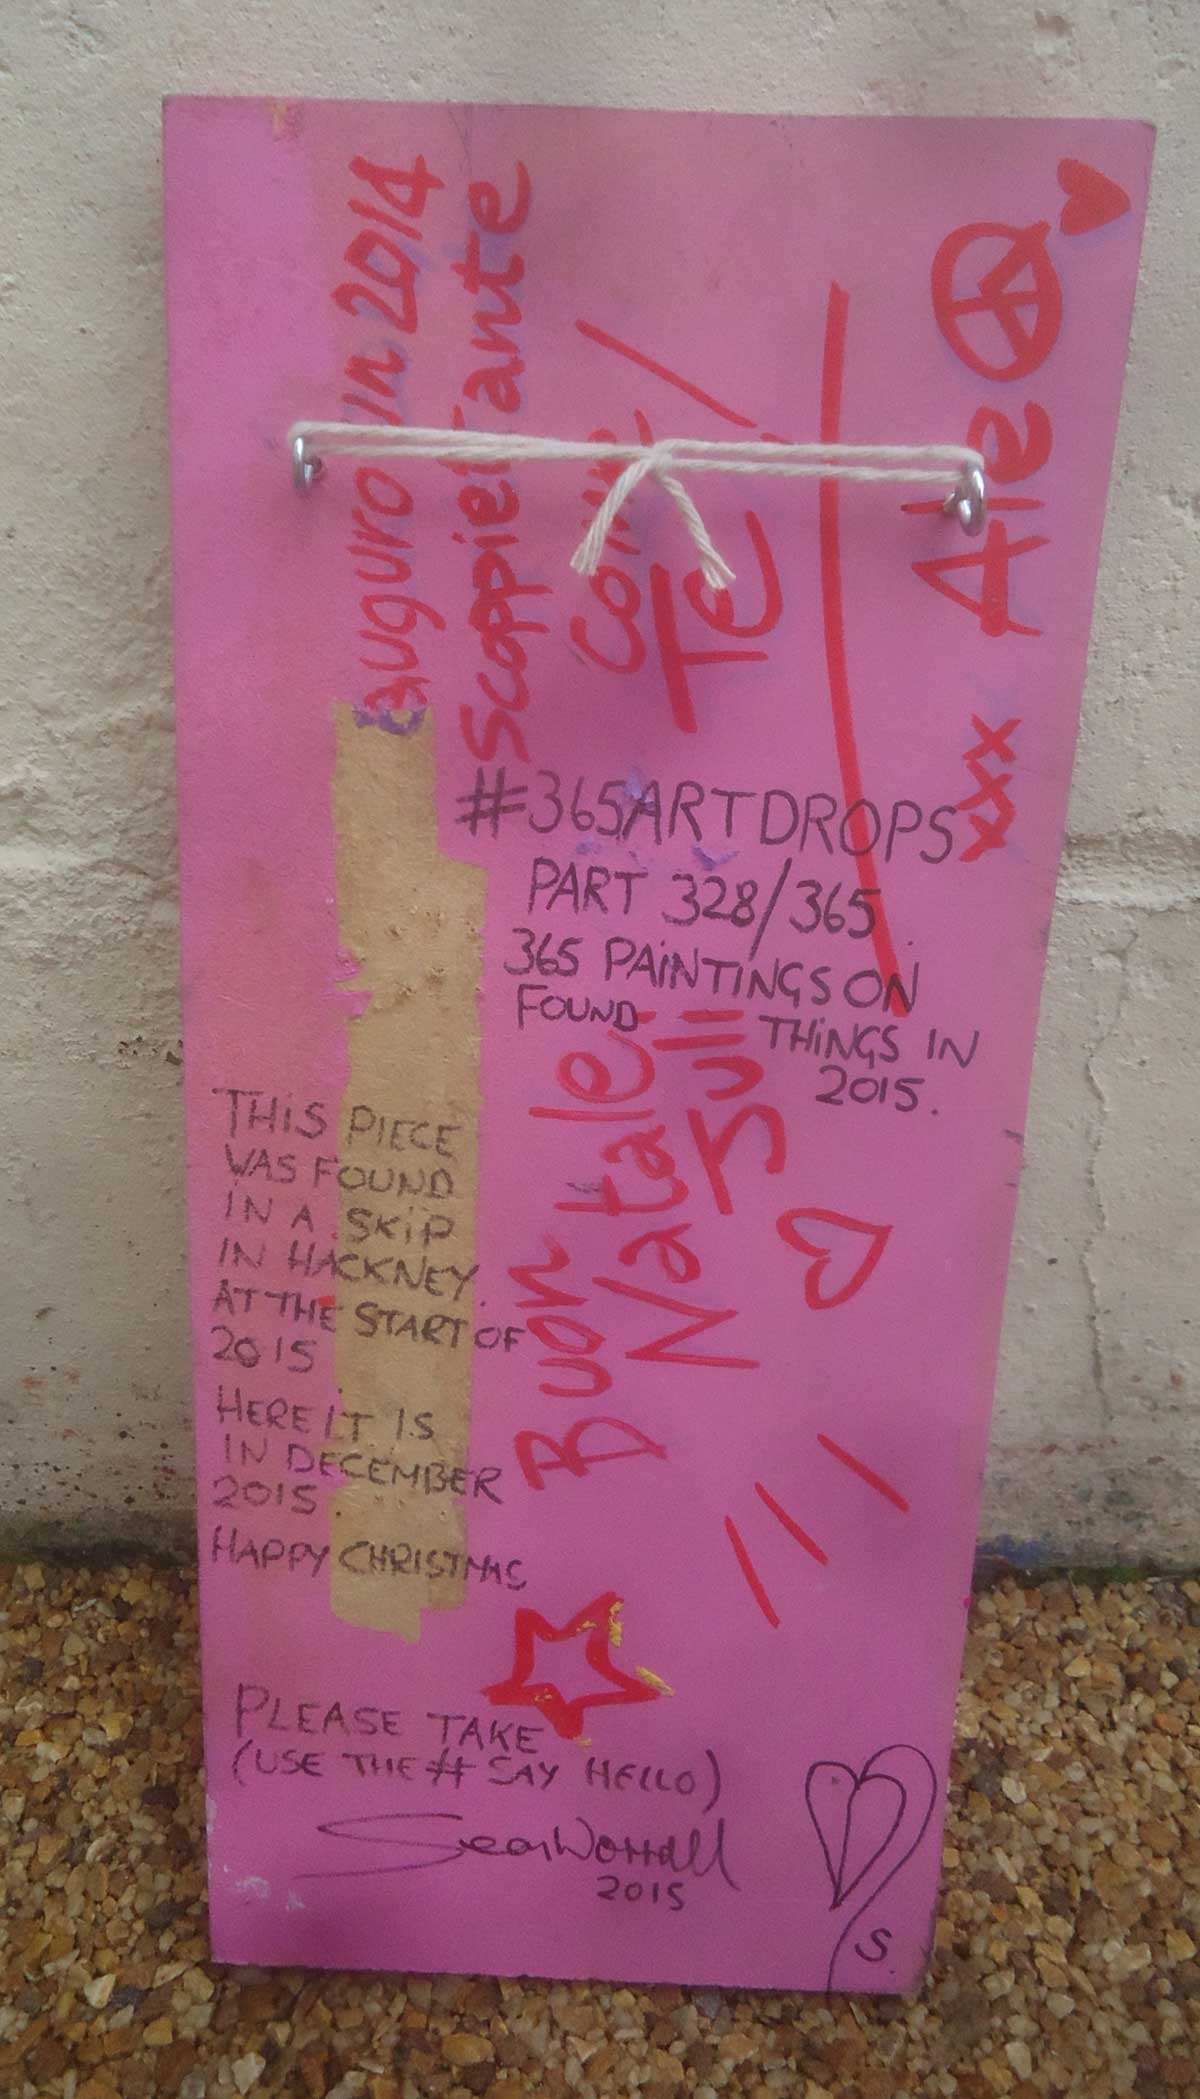 #365ARTDROPS
PART 328/365
365 PAiNTINGS ON
FOUND THiNGS IN
2015.
THiS PIECE
WAS FOUND
IN A SKiP
IN HACKNEY
AT THE START OF
2015
HERE IT IS
IN DECEMBER
2015.
HAPPY CHRISTMAS
PLEASE TAKE
(USE THE # SAY HELLO)
Sean Worrall
2015
S
Buon
Natale,
Juli
auguro un 2014
Scoppiettante
Come
Te!
xxx Ale